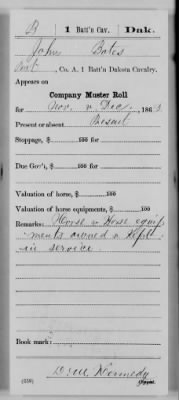 B | 1 Batt'n Cav. | Dak.
John Bates
Pvt, Co. A, 1 Batt'n Dakota Cavalry.
Appears on
Company Muster Roll
for Nov. & Dec., 1863
Present or absent Present
Stoppage, $ 100 for
Due Gov't, $ 100 for
Valuation of horse, $ 100
Valuation of horse equipments, $ 100
Remarks: Horse & Horse equip
ments owned & kept
in service.
Book mark:
(358) Copyist.